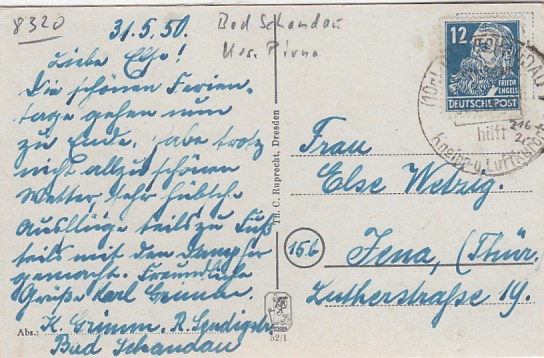 8320
31.5.50.
Bad Schandau
Kr. Pirna
Liebe Else!
Die schönen Ferien-
tage gehen nun
zu Ende, habe trotz
nicht allzu schönen
Wetter, sehr hübsche
Ausflüge teils zu Fuß
teils mit dem Dampfer
gemacht. Freundliche
Grüße Karl Grimm.
Abs.: K. Grimm. R. Sendigstr.
Bad Schandau
Th. C. Ruprecht, Dresden
52/1
12
FRIEDR.
ENGELS
DEUTSCHE POST
hilft
Frau
Else Wetzig.
15b
Jena, (Thür.
Lutherstraße 19.